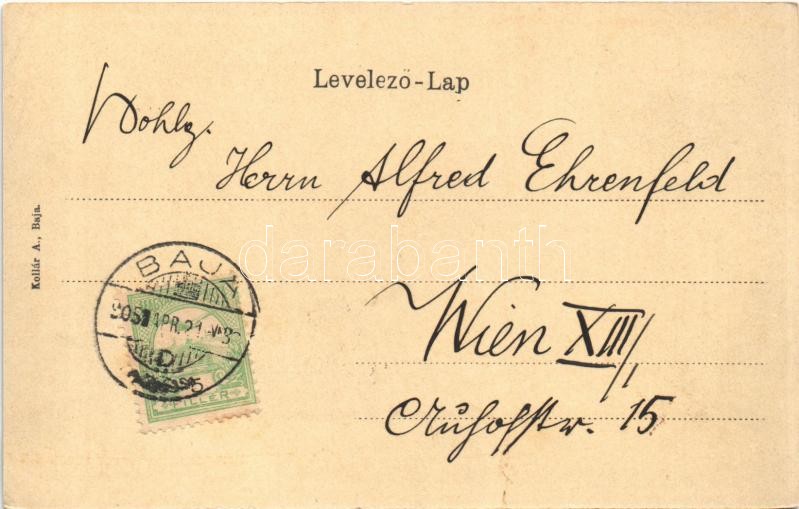 Levelező-Lap
Wohlg.
Herrn Alfred Ehrenfeld
Wien XIII/,
Auhofstr. 15
Kollár A., Baja.
BAJA
905 APR. 21
D
5
FILLÉR
darabanth